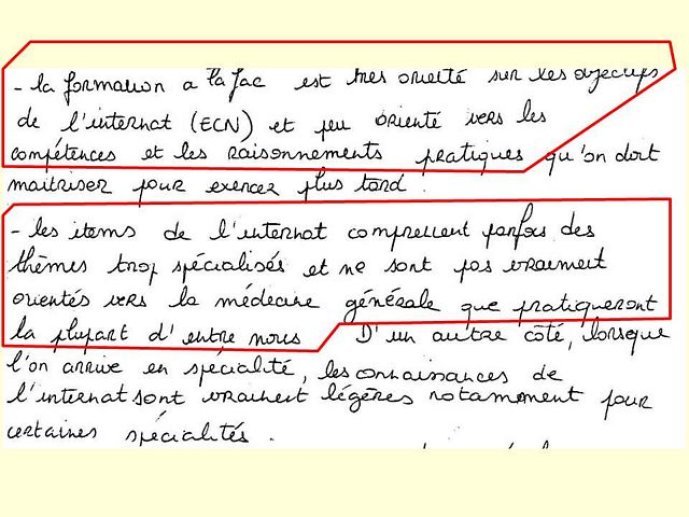 - la formation a la fac est tres orienté sur les objectifs
de l'internat (ECN) et peu orienté vers les
compétences et les raisonnements pratiques qu'on doit
maitriser pour exercer plus tard.
- les items de l'internat comprennent parfois des
thèmes trop spécialisés et ne sont pas vraiment
orientés vers la médecine générale que pratiqueront
la plupart d'entre nous D'un autre côté, lorsque
l'on arrive en spécialité, les connaissances de
l'internat sont vraiment légères notamment pour
certaines spécialités.